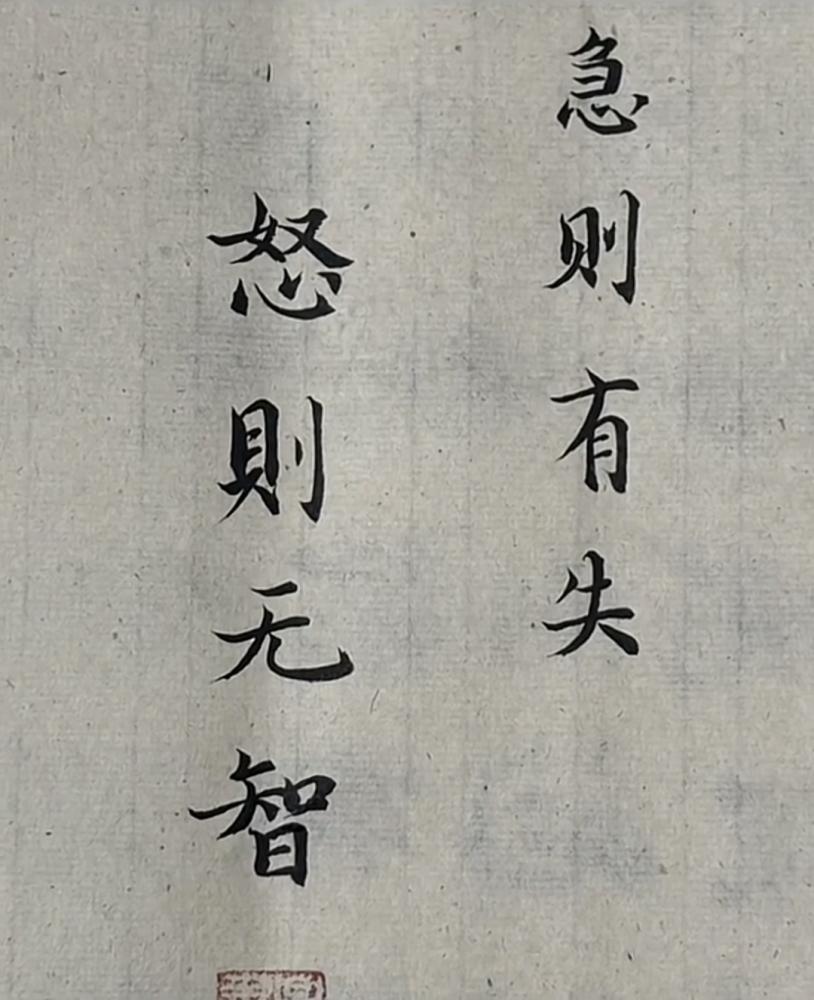 急则有失
怒則无智